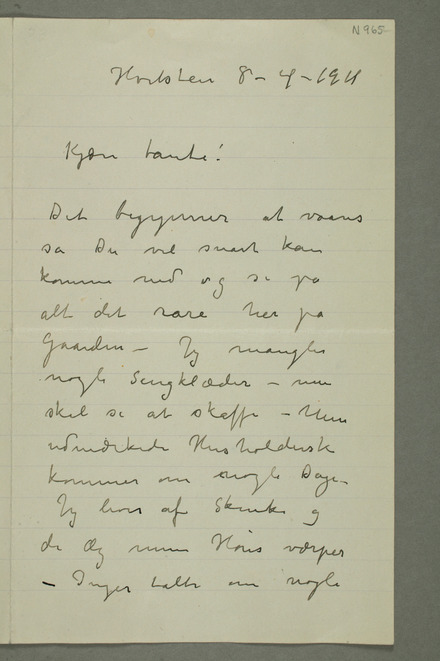 N 965
Hvitsten 8-4-1911
Kjære tante!
Det begynner at vaares
så Du vel snart kan
komme ned og se på
alt det rare her på
Gaarden – Jeg mangler
nogle Sengklæder – men
skal se at skaffe – Min
udmærkede Husholderske
kommer om nogle Dage –
Jeg lever af Skinke og
de Æg mine Höns værper
– Inger talte om nogle